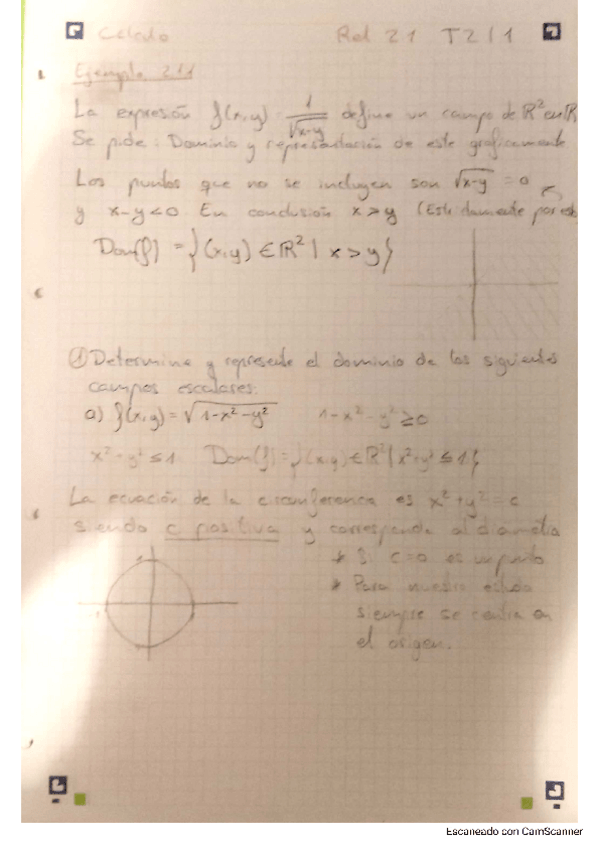 Cálculo Rel 2.1 T2 / 1
Ejemplo 2.1.1
La expresión f(x,y) = 1/√x-y define un campo de ℝ² en ℝ
Se pide: Dominio y representación de este gráficamente
Los puntos que no se incluyen son √x-y = 0
y x-y<0 En conclusión x>y (Estrictamente por est
Dom(f) = {(x,y) ∈ ℝ² | x > y}
① Determine y represente el dominio de los siguientes
campos escalares:
a) f(x,y) = √1-x²-y² 1-x²-y² ≥ 0
x²+y² ≤ 1 Dom(f) = {(x,y) ∈ ℝ² | x²+y² ≤ 1}
La ecuación de la circunferencia es x²+y² = c
siendo c positiva y corresponde al diametro
* Si c=0 es un punto
* Para nuestro estudio
siempre se centra en
el origen.
Escaneado con CamScanner